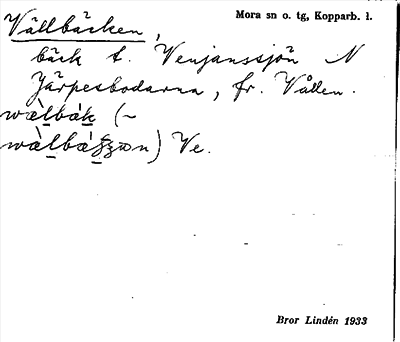 Vållbäcken,
Mora sn o. tg, Kopparb. l.
bäck t. Venjanssjön N
Järpesbodarna, fr. Vållen.
wæ̀lbák (~
Ve.
Bror Lindén 1933